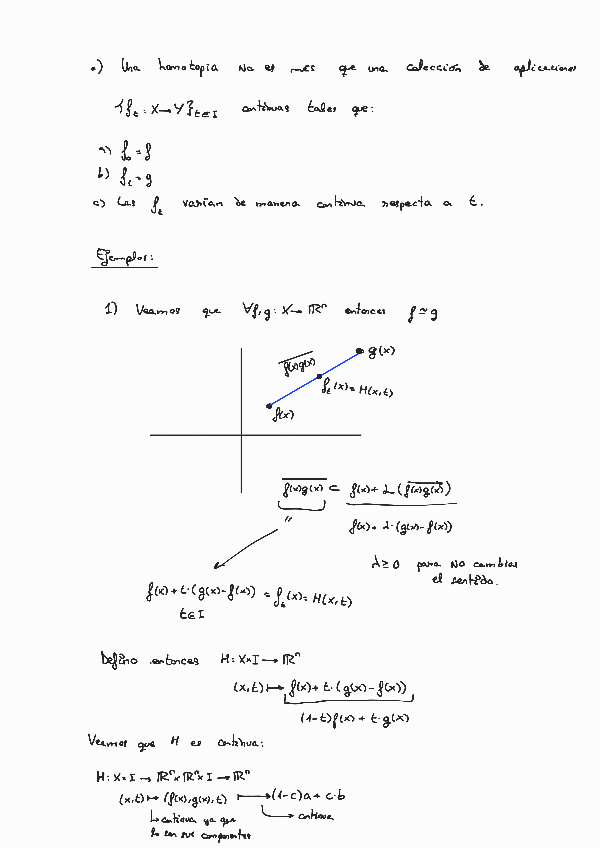 •) Una homotopia no es mes que una colección de aplicaciones
{f_t : X→Y}_{t∈I} continuas tales que:
a) f_0 = f
b) f_1 = g
c) Les f_t varían de manera continua respecto a t.
Ejemplos:
1) Veamos que ∀f,g : X→ℝⁿ entonces f ≃ g
g(x)
f(x)g(x)
f_t(x) = H(x,t)
f(x)
f(x)g(x) ⊂ f(x) + λ(f(x)g(x))
"
f(x) + λ·(g(x) - f(x))
λ ≥ 0 para NO cambiar
el sentido.
f(x) + t·(g(x) - f(x)) = f_t(x) = H(x,t)
t∈I
Defino entonces H : X×I → ℝⁿ
(x,t) ↦ f(x) + t·(g(x) - f(x))
(1-t)f(x) + t·g(x)
Veamos que H es continua:
H : X×I → ℝⁿ×ℝⁿ×I → ℝⁿ
(x,t) ↦ (f(x), g(x), t) ↦ (1-c)a + c·b
↳ continua ya que
↳ continua
lo son sus componentes